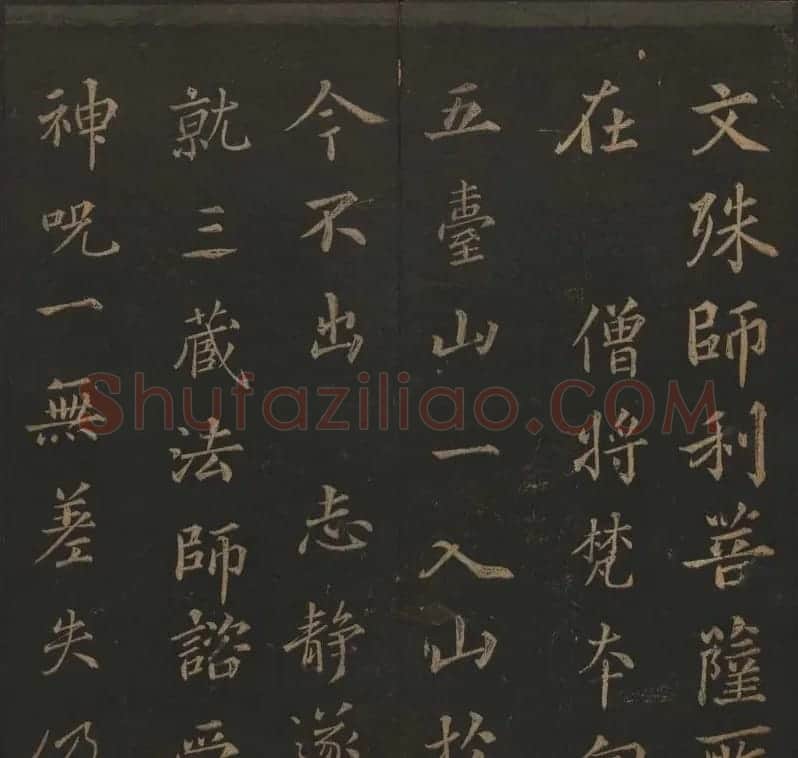 文殊師利菩薩所
在 僧將梵本向
五臺山一入山於
今不出 志靜遂
就三藏法師諮受
神呪一無差失仍
Shufaziliao.COM